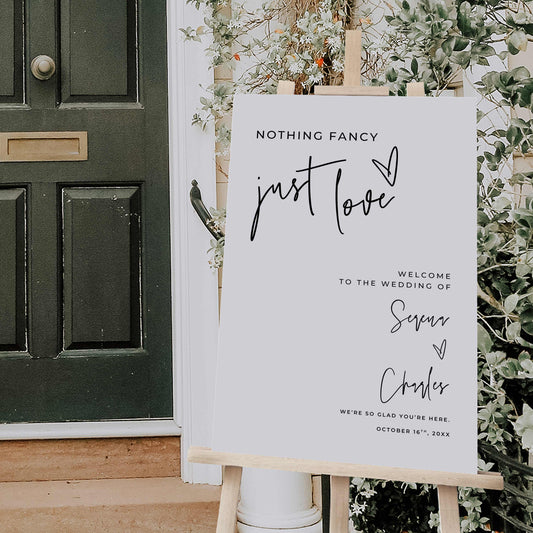 NOTHING FANCY
just love
WELCOME
TO THE WEDDING OF
Serena
Charles
WE'RE SO GLAD YOU'RE HERE.
OCTOBER 16TH, 20XX